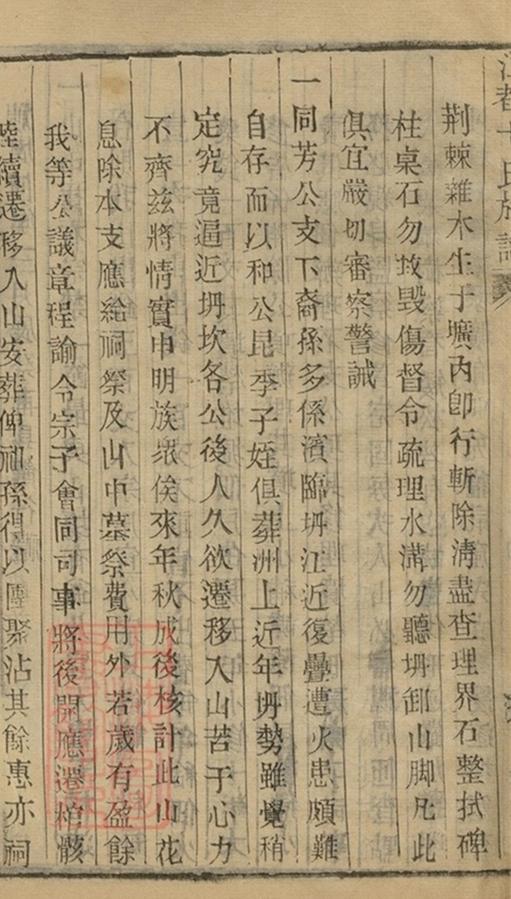 江都卞氏族譜
荆棘雜木生于壙內卽行斬除淸盡查理界石整拭碑
柱桌石勿致毀傷督令疏理水溝勿聽坍卸山脚凡此
俱宜嚴切審察警誡
一同芳公支下裔孫多係濱臨坍江近復疊遭火患頗難
自存而以和公昆季子姪俱葬洲上近年坍勢雖覺稍
定究竟逼近坍坎各公後人久欲遷移入山苦于心力
不齊兹將情實申明族衆俟來年秋成後核計此山花
息除本支應給祠祭及山中墓祭費用外若歲有盈餘
我等公議章程諭令宗子會同司事將後開應遷棺骸
陸續遷移入山安葬俾祖孫得以團聚沾其餘惠亦祠